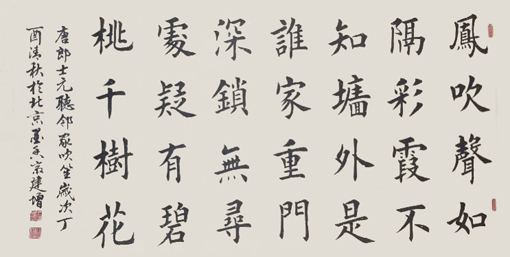 鳳吹聲如
隔彩霞不
知墻外是
誰家重門
深鎖無尋
處疑有碧
桃千樹花
唐郎士元聽邻家吹笙歲次丁
酉清秋於北京建增